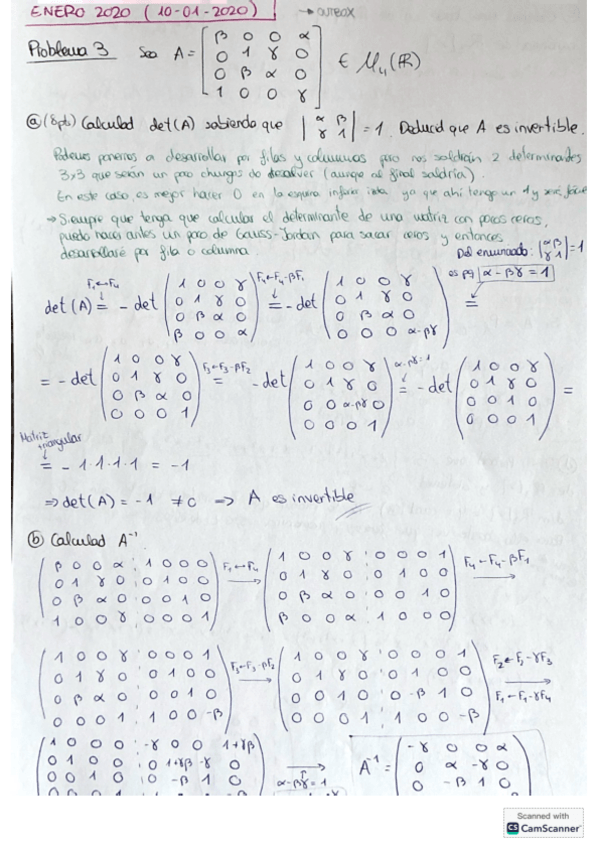 ENERO 2020 (10-01-2020) → OUTBOX
Problema 3 Sea A = [β 0 0 α; 0 1 γ 0; 0 β α 0; 1 0 0 γ] ∈ M₄(ℝ)
ⓐ (8pts) Calculad det(A) sabiendo que |α β; γ 1| = 1. Deducid que A es invertible.
Podemos ponernos a desarrollar por filas y columnas pero nos saldrán 2 determinantes
3x3 que serían un poco chungos de resolver (aunque al final saldría).
En este caso, es mejor hacer 0 en la esquina inferior izda ya que ahí tengo un 1 y
→ Siempre que tenga que calcular el determinante de una matriz con pocos ceros,
puedo hacer antes un paso de Gauss-Jordan para sacar ceros y entonces
desarrollaré por fila o columna.
Del enunciado: |α β; γ 1| = 1
es pq α-βγ=1
det(A) = (F₁↔F₄) -det(1 0 0 γ; 0 1 γ 0; 0 β α 0; β 0 0 α) = (F₄←F₄-βF₁) -det(1 0 0 γ; 0 1 γ 0; 0 β α 0; 0 0 0 α-βγ) =
= -det(1 0 0 γ; 0 1 γ 0; 0 β α 0; 0 0 0 1) = (F₃←F₃-βF₂) -det(1 0 0 γ; 0 1 γ 0; 0 0 α-βγ 0; 0 0 0 1) = (α-βγ=1) -det(1 0 0 γ; 0 1 γ 0; 0 0 1 0; 0 0 0 1) =
Matriz triangular
= -1·1·1·1 = -1
⇒ det(A) = -1 ≠ 0 ⇒ A es invertible
ⓑ Calculad A⁻¹.
(β 0 0 α 1 0 0 0; 0 1 γ 0 0 1 0 0; 0 β α 0 0 0 1 0; 1 0 0 γ 0 0 0 1) F₁↔F₄ → (1 0 0 γ 0 0 0 1; 0 1 γ 0 0 1 0 0; 0 β α 0 0 0 1 0; β 0 0 α 1 0 0 0) F₄←F₄-βF₁ →
(1 0 0 γ 0 0 0 1; 0 1 γ 0 0 1 0 0; 0 β α 0 0 0 1 0; 0 0 0 1 1 0 0 -β) F₃←F₃-βF₂ → (1 0 0 γ 0 0 0 1; 0 1 γ 0 0 1 0 0; 0 0 1 0 0 -β 1 0; 0 0 0 1 1 0 0 -β) F₂←F₂-γF₃ → F₁←F₁-γF₄
(1 0 0 0 -γ 0 0 1+γβ; 0 1 0 0 0 1+γβ -γ 0; 0 0 1 0 0 -β 1 0 → α-βγ=1 A⁻¹ = (-γ 0 0 α; 0 α -γ 0; 0 -β 1 0
Scanned with
CS CamScanner